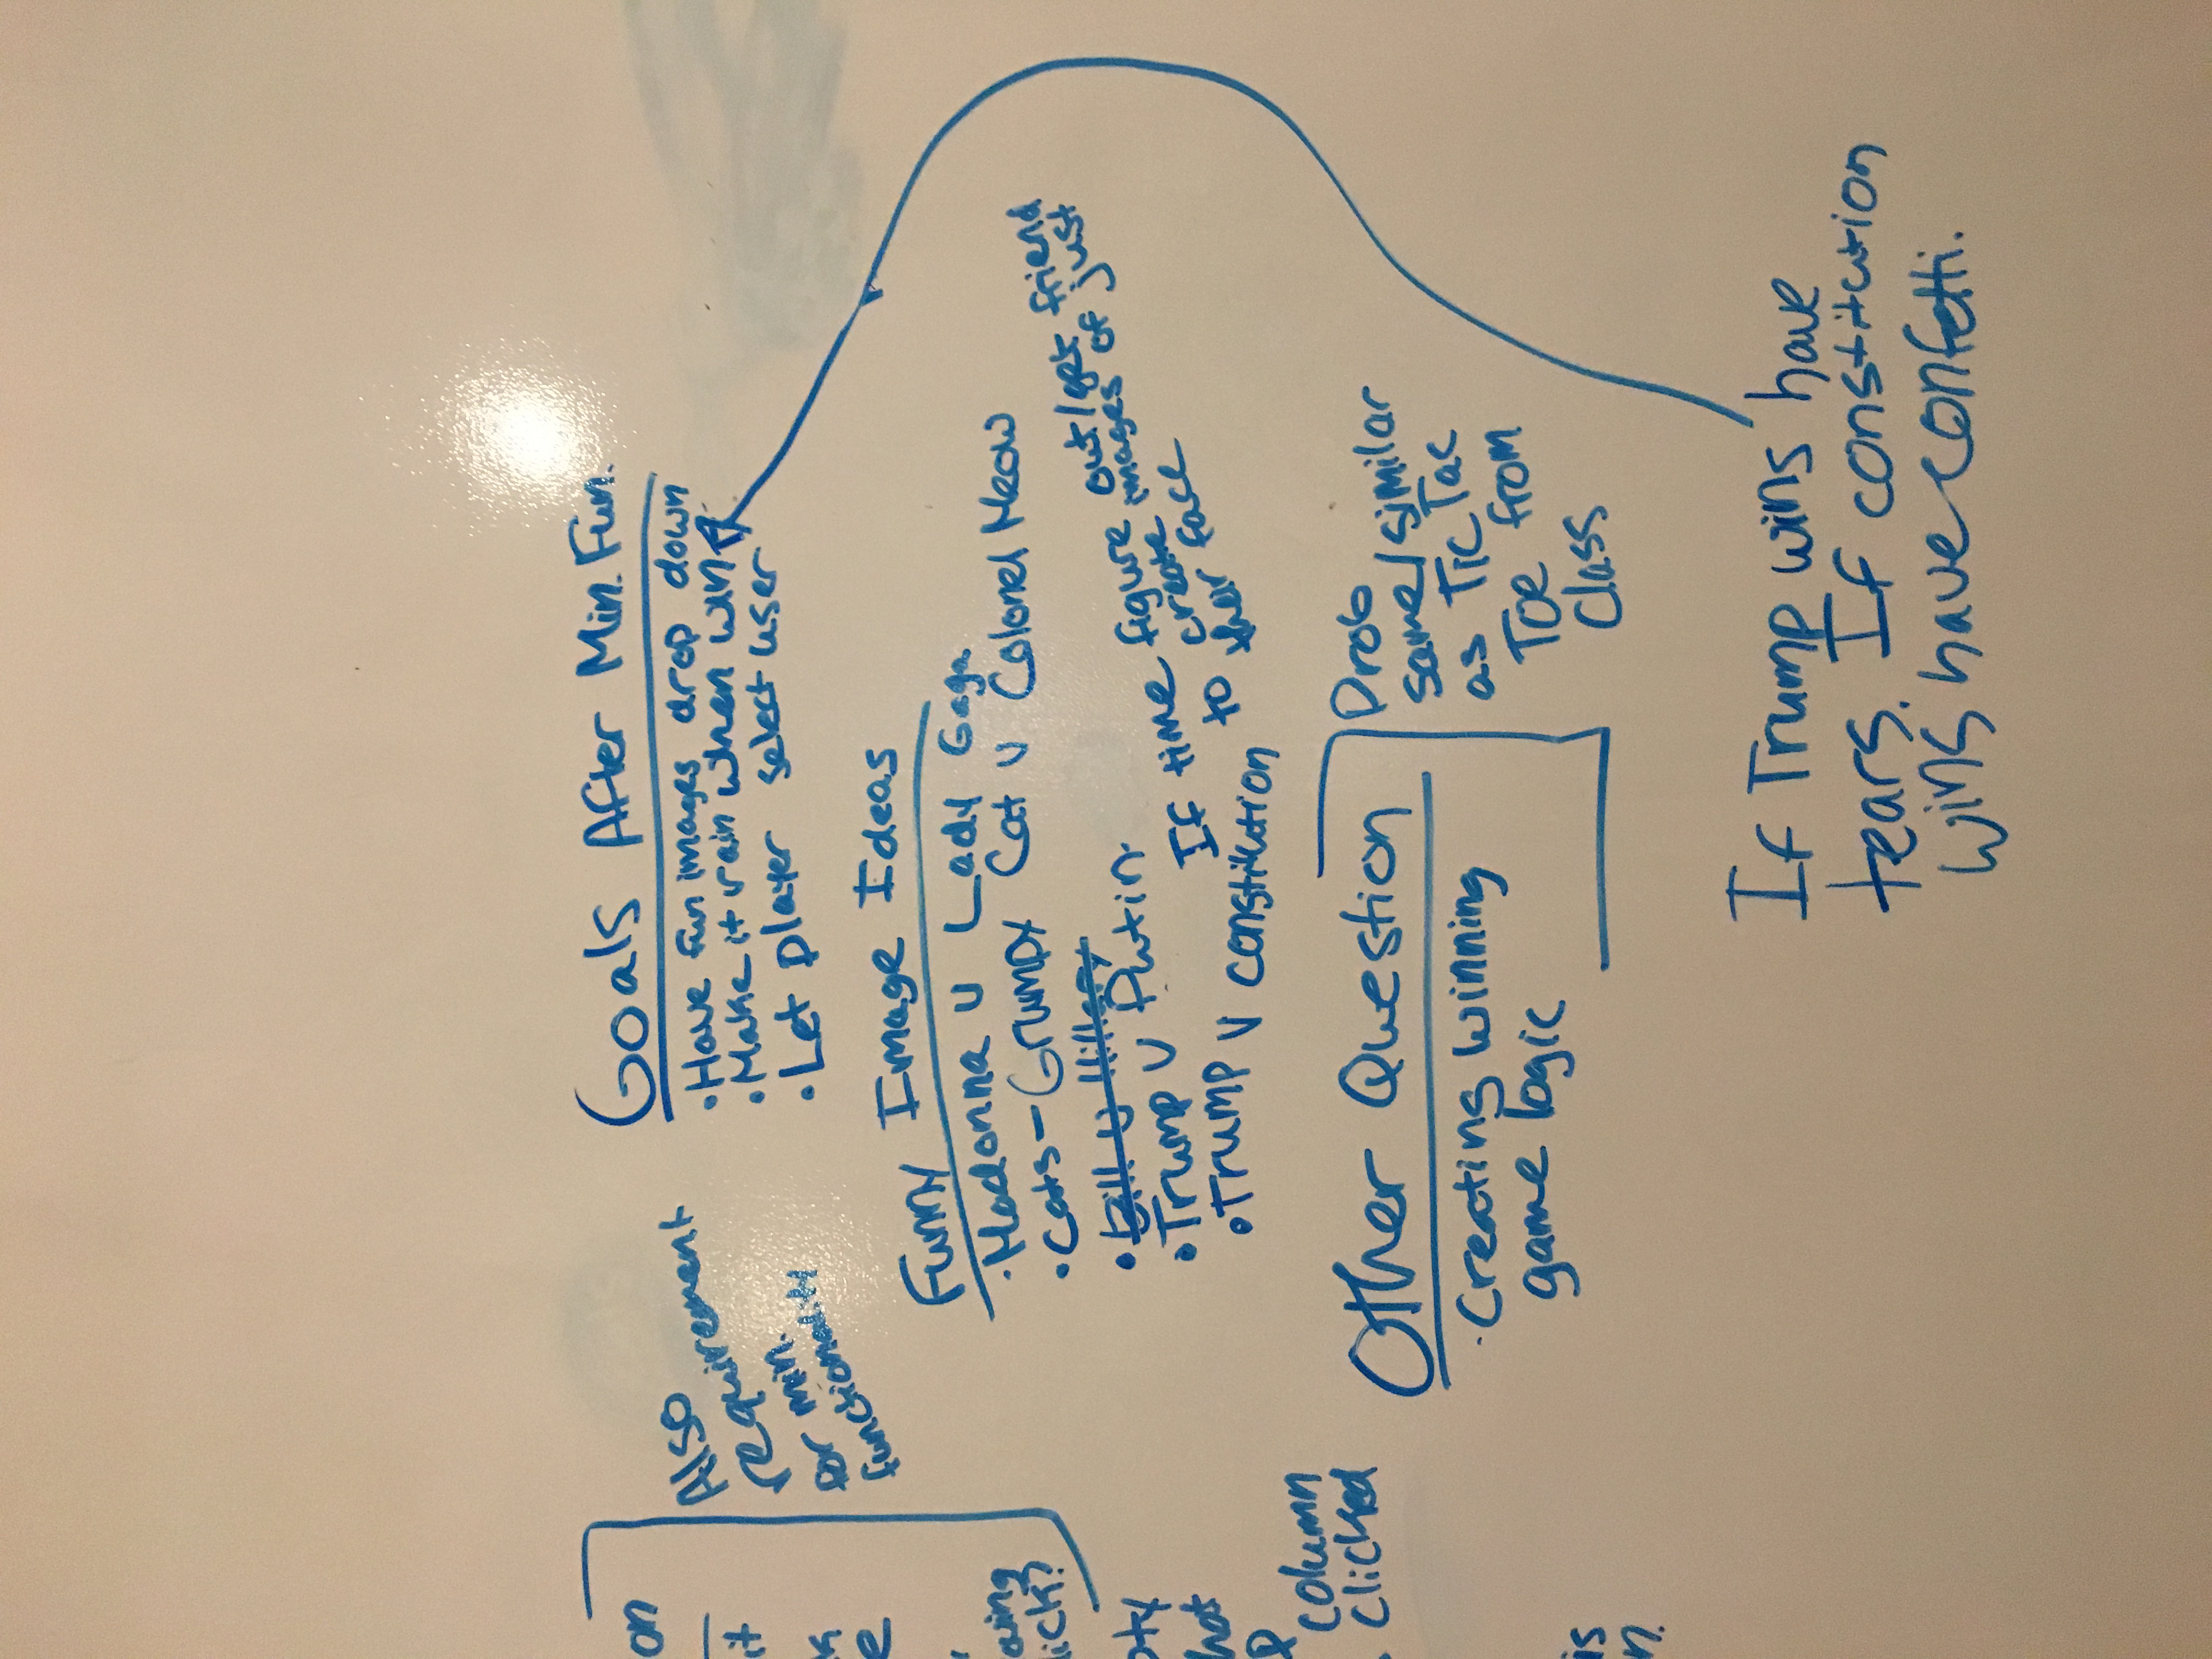 on
it
Also
requirement
for min.
functionality
owing
lick?
hat
column
clicked
is
n.
Goals After Min. Fun.
• Have fun images drop down
• Make it rain when win
• Let player select user
Funny Image Ideas
• Madonna v Lady Gaga
• Cats - Grumpy Cat v Colonel Meow
• Bill v Hillary
• Trump v Putin
• Trump v constitution
If time figure out/get friend
to create images of just
their face
Other Question
• Creating winning
game logic
Prob
same/similar
as Tic Tac
Toe from
Class
If Trump wins have
tears. If constitution
wins have confetti.